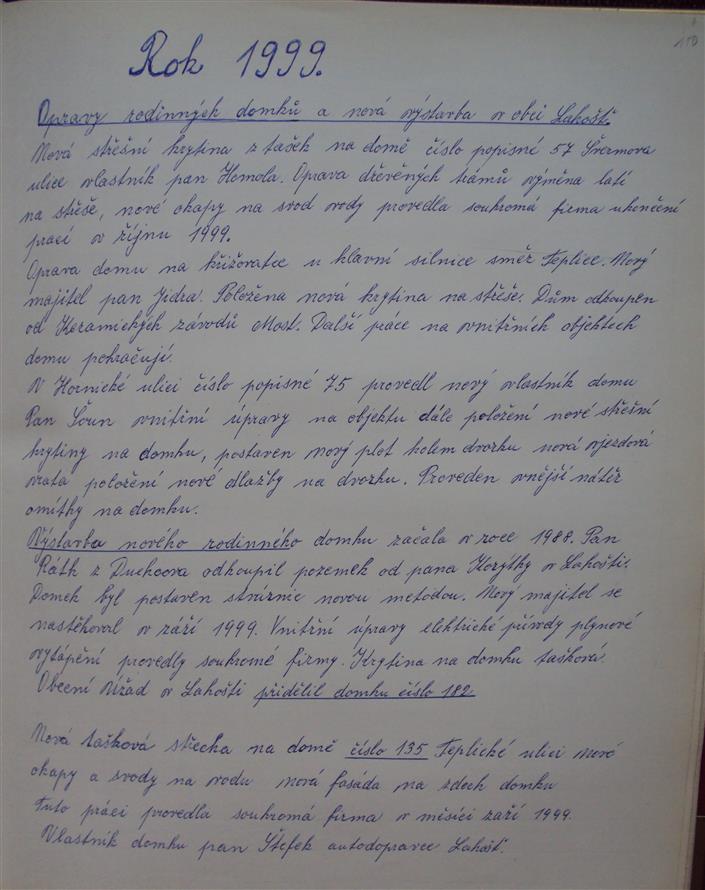 110
Rok 1999.
Opravy rodinných domků a nová výstavba v obci Lahošť.
Nová střešní krytina z tašek na domě číslo popisné 57 Švermova
ulice vlastník pan Homola. Oprava dřevěných trámů výměna latí
na střeše, nové okapy na svod vody provedla soukromá firma ukončení
prací v říjnu 1999.
Oprava domu na křižovatce u hlavní silnice směr Teplice. Nový
majitel pan Jidra. Položena nová krytina na střeše. Dům odkoupen
od Keramických závodů Most. Další práce na vnitřních objektech
domu pokračují.
V Hornické ulici číslo popisné 75 provedl nový vlastník domu
Pan Šoun vnitřní úpravy na objektu dále položení nové střešní
krytiny na domku, postaven nový plot kolem dvorku nová vjezdová
vrata položení nové dlažby na dvorku. Proveden vnější nátěr
omítky na domku.
Výstavba nového rodinného domku začala v roce 1988. Pan
Ráth z Duchcova odkoupil pozemek od pana Korýtky v Lahošti.
Domek byl postaven novou metodou. Nový majitel se
nastěhoval v září 1999. Vnitřní úpravy elektrické přívody plynové
vytápění provedly soukromé firmy. Krytina na domku tašková.
Obecní Úřad v Lahošti přidělil domku číslo 182.
Nová tašková střecha na domě číslo 135 Teplické ulici nové
okapy a svody na vodu nová fasáda na zdech domku
Tuto práci provedla soukromá firma v měsíci září 1999.
Vlastník domku pan Štefek autodopravce Lahošť.